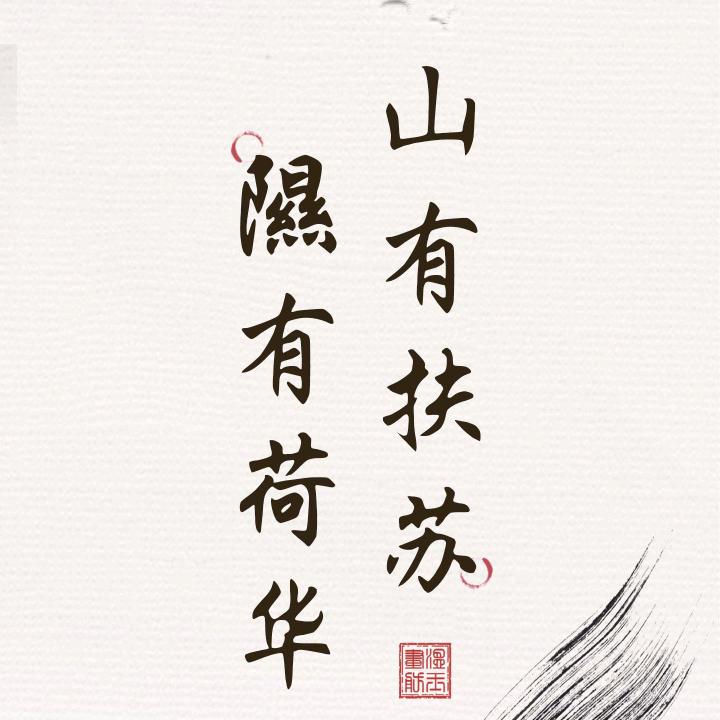 山有扶苏
隰有荷华